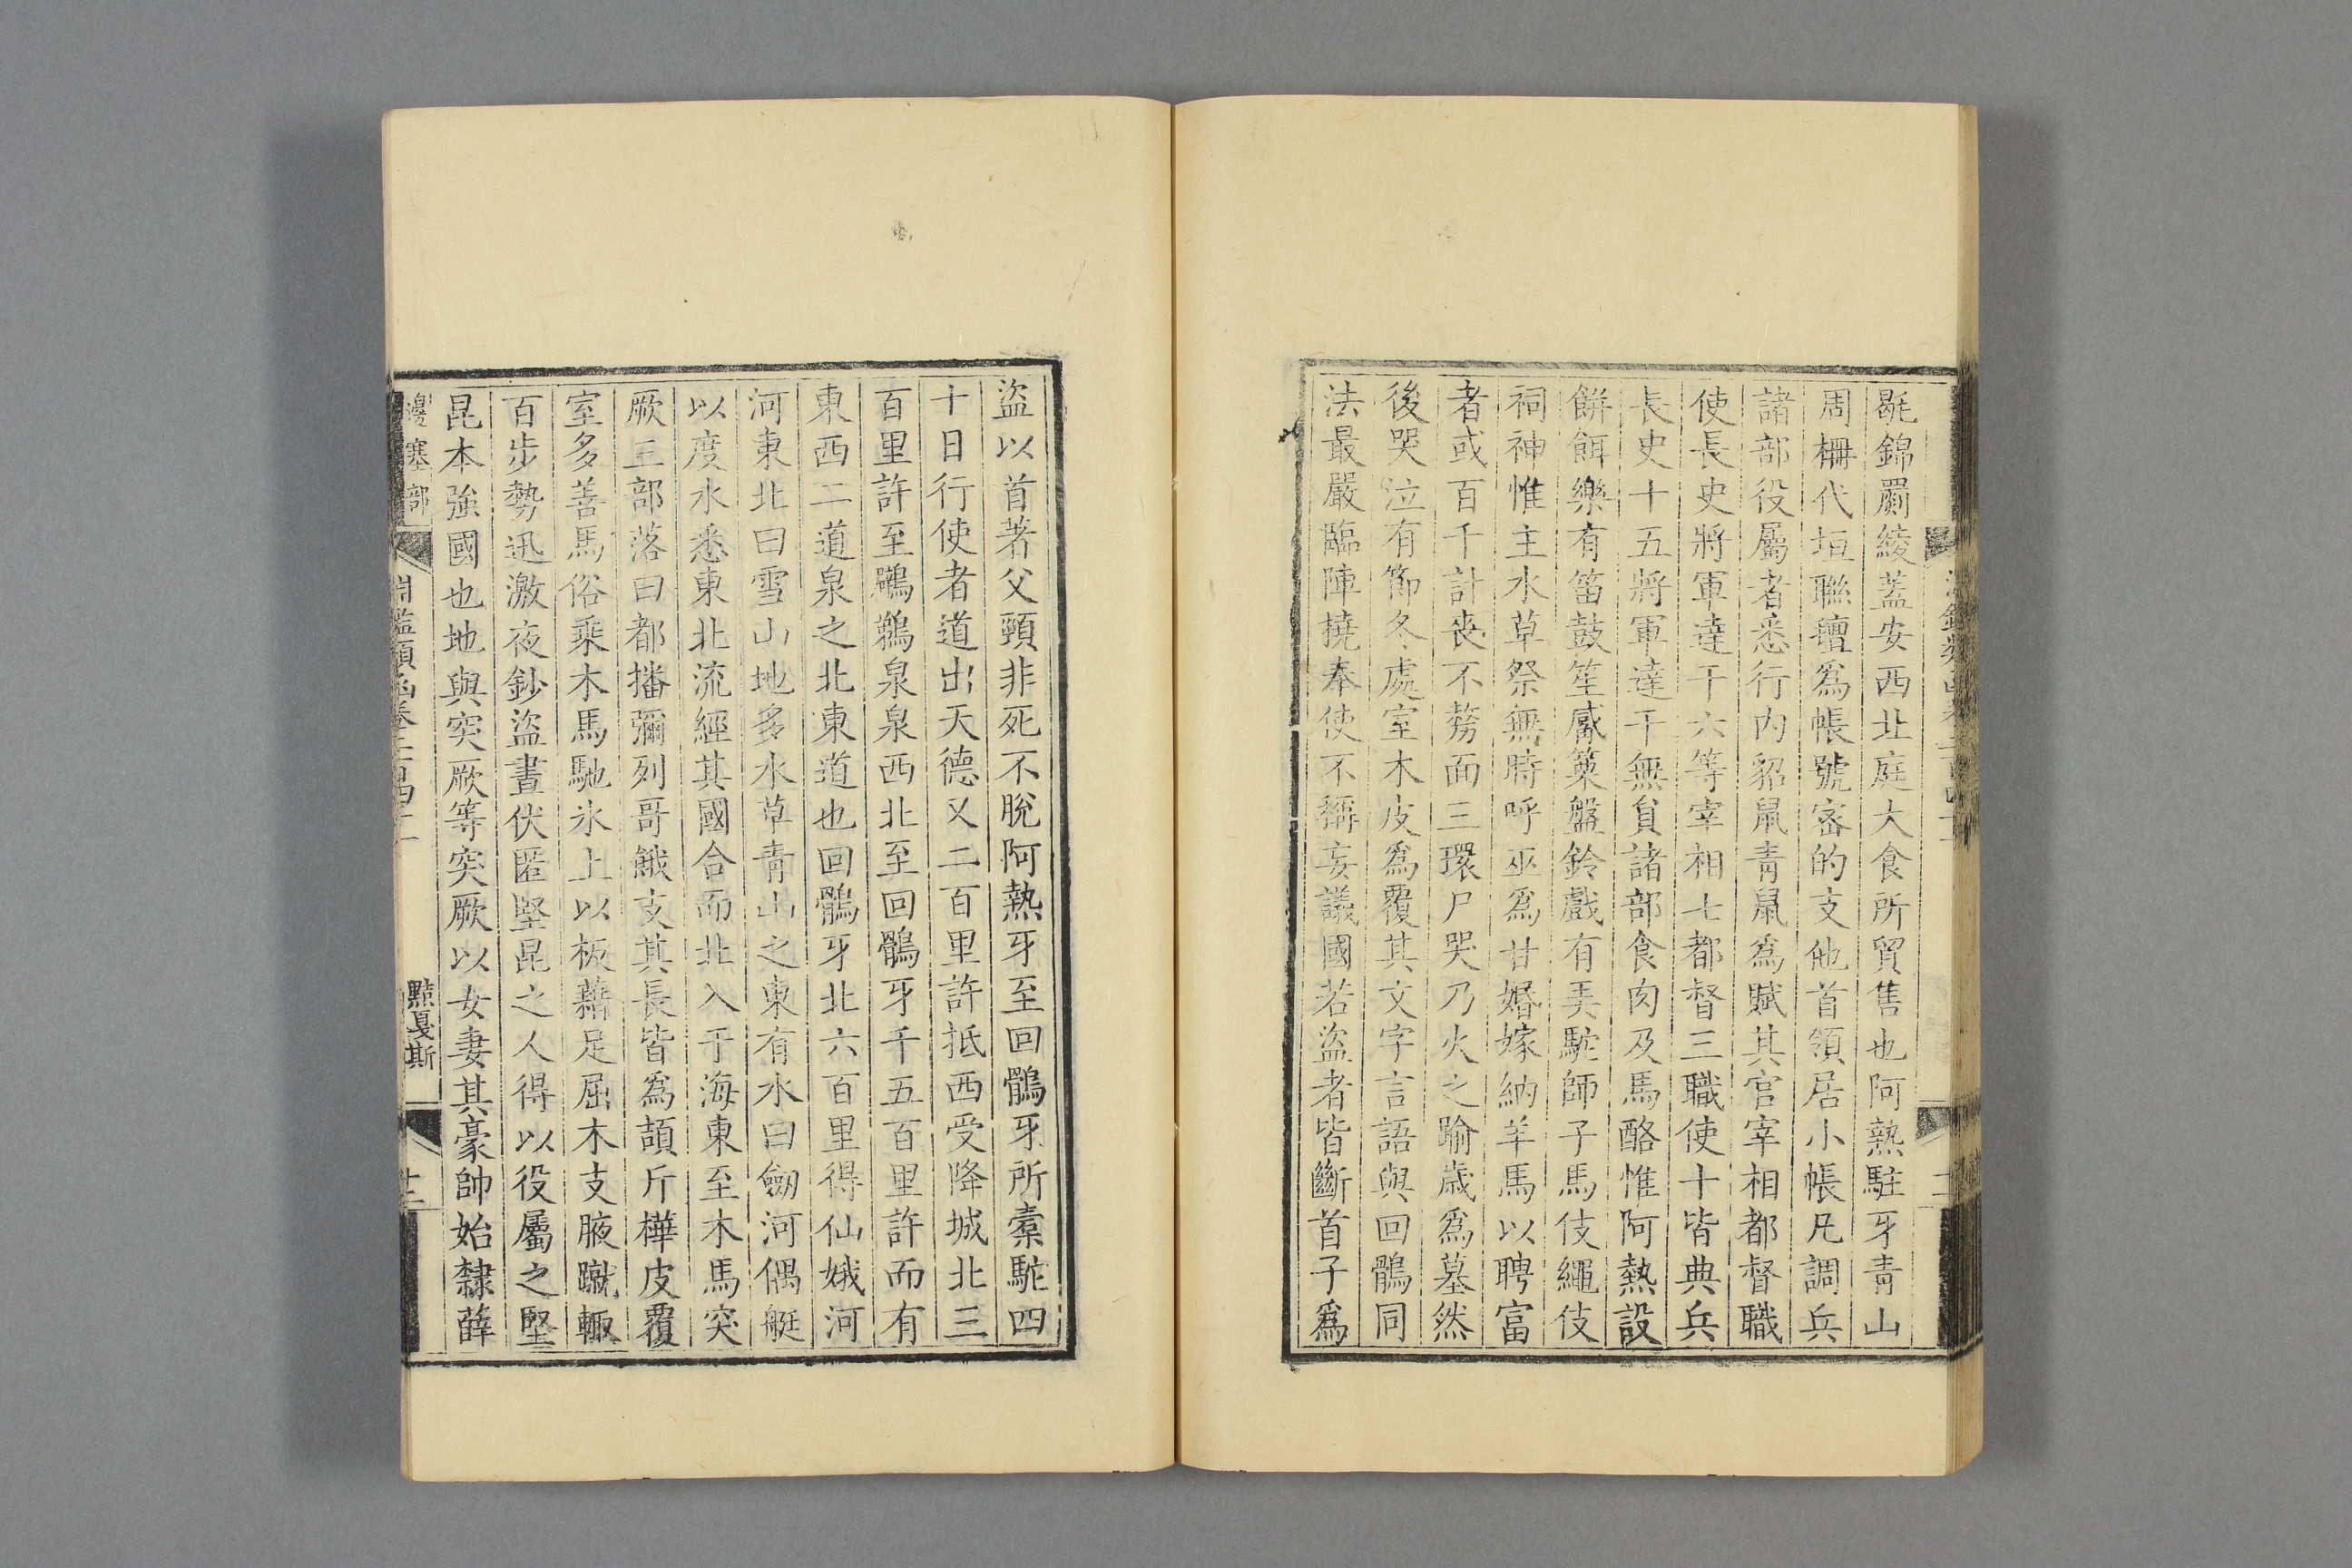 毼錦罽綾蓋安西北庭大食所貿售也阿熱駐牙青山
周柵代垣聯氊爲帳號密的支他首領居小帳凡調兵
諸部役屬者悉行内貂鼠青鼠爲賦其官宰相都督職
使長史將軍達干六等宰相七都督三職使十皆典兵
長史十五將軍達干無員諸部食肉及馬酪惟阿熱設
餅餌樂有笛鼓笙觱篥盤鈴戲有弄駝師子馬伎繩伎
祠神惟主水草祭無時呼巫爲甘婚嫁納羊馬以聘富
者或百千計喪不剺面三環尸哭乃火之踰歲爲墓然
後哭泣有節冬處室木皮爲覆其文字言語與回鶻同
法最嚴臨陣撓奉使不稱妄議國若盜者皆斷首子爲
盜以首著父頸非死不脫阿熱牙至回鶻牙所橐駝四
十日行使者道出天德又二百里許抵西受降城北三
百里許至鸊鵜泉泉西北至回鶻牙千五百里許而有
東西二道泉之北東道也回鶻牙北六百里得仙娥河
河東北曰雪山地多水草青山之東有水曰劒河偶艇
以度水悉東北流經其國合而北入于海東至木馬突
厥三部落曰都播彌列哥餓支其長皆爲頡斤樺皮覆
室多善馬俗乘木馬馳氷上以板藉足屈木支腋蹴輙
百步勢迅激夜鈔盜晝伏匿堅昆之人得以役屬之堅
昆本強國也地與突厥等突厥以女妻其豪帥始隸薛
邊塞部 淵鑑類函卷二百四十二 黠戛斯 十三